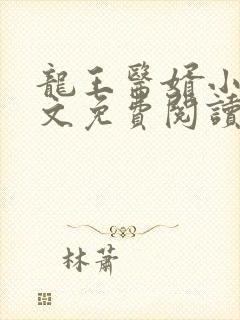 龍王醫婿小
文免費閱讀
林蕭